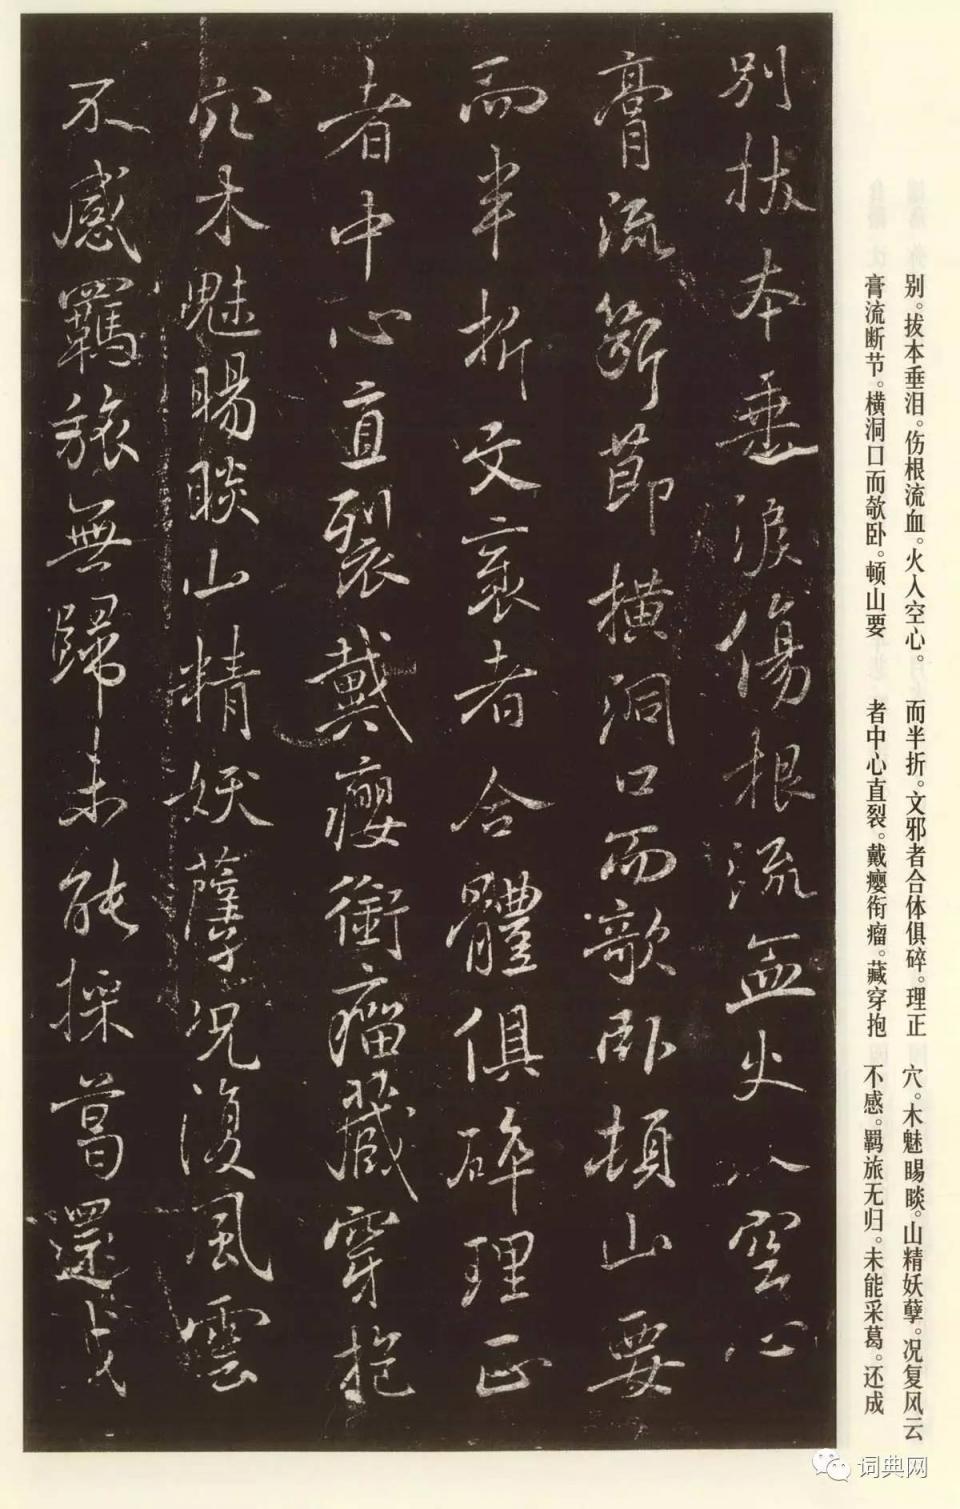 别拔本垂淚傷根流血火入空心
膏流斷節横洞口而欹卧頓山要
而半折文衺者合體俱碎理正
者中心直裂戴癭銜瘤藏穿抱
穴木魅睗睒山精妖孽况復風雲
不感羈旅無歸未能採葛還成
别。拔本垂泪。伤根流血。火入空心。
膏流断节。横洞口而欹卧。顿山要
而半折。文邪者合体俱碎。理正
者中心直裂。戴瘿衔瘤。藏穿抱
穴。木魅睗睒。山精妖孽。况复风云
不感。羁旅无归。未能采葛。还成
词典网